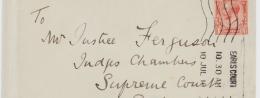 To
Mr Justice Ferguson
Judges Chambers
Supreme Court
EARLS COURT
10.30 AM
10 JUL